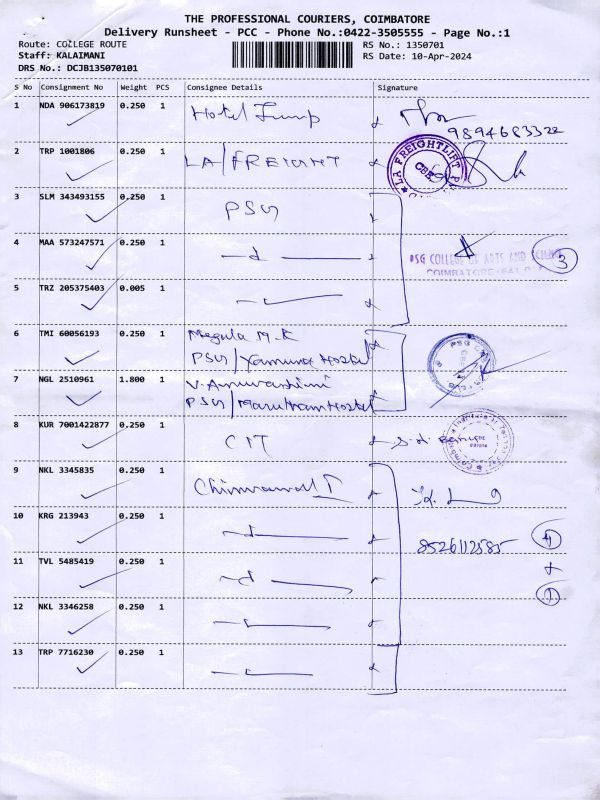 THE PROFESSIONAL COURIERS, COIMBATORE
Delivery Runsheet - PCC - Phone No.:0422-3505555 - Page No.:1
Route: COLLEGE ROUTE RS No.: 1350701
Staff: KALAIMANI RS Date: 10-Apr-2024
DRS No.: DCJB135070101
S No Consignment No Weight PCS Consignee Details Signature
1 NDA 906173819 0.250 1 Hotel
9894683322
2 TRP 1001806 0.250 1 LA/FREIGHT LA FREIGHTLIFT CBE
3 SLM 343493155 0.250 1 PSG
4 MAA 573247571 0.250 1 PSG COLLEGE OF ARTS AND 3
COIMBATORE-641
5 TRZ 205375403 0.005 1
6 TMI 60056193 0.250 1 Megula M.K
PSG/Yamuna Hostel PSG
7 NGL 2510961 1.800 1
PSG/Marutham Hostel
8 KUR 7001422877 0.250 1 CIT
9 NKL 3345835 0.250 1
10 KRG 213943 0.250 1
8526112585 4
11 TVL 5485419 0.250 1 +
12 NKL 3346258 0.250 1 1
13 TRP 7716230 0.250 1